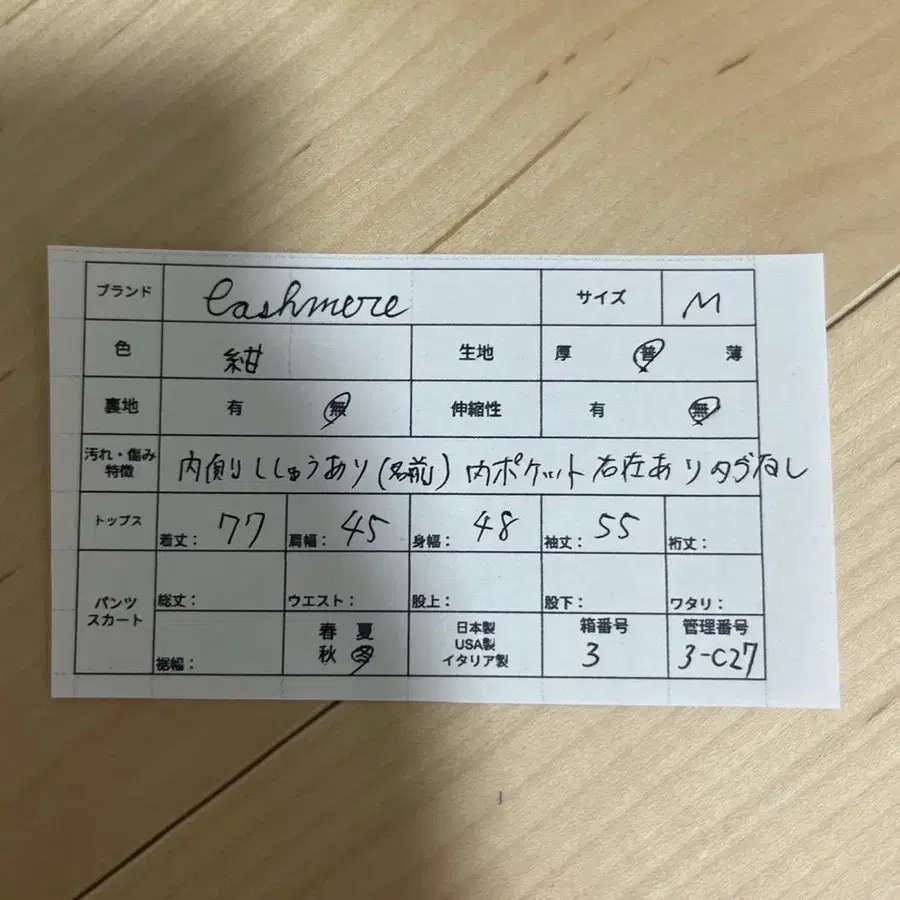 ブランド Cashmere サイズ M
色 紺 生地 厚 普 薄
裏地 有 無 伸縮性 有 無
汚れ・傷み
特徴 内側ししゅうあり(名前) 内ポケット右左あり タグなし
トップス 着丈: 77 肩幅: 45 身幅: 48 袖丈: 55 裄丈:
パンツ
スカート 総丈: ウエスト: 股上: 股下: ワタリ:
裾幅: 春 夏
秋 冬
日本製
USA製
イタリア製
箱番号
3
管理番号
3-C27